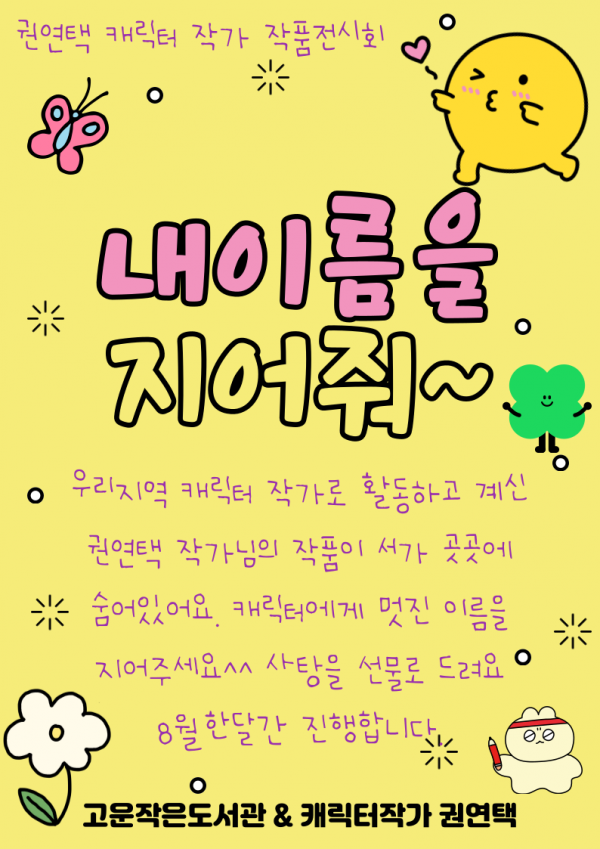 권연택 캐릭터 작가 작품전시회
내이름을
지어줘~
우리지역 캐릭터 작가로 활동하고 계신
권연택 작가님의 작품이 서가 곳곳에
숨어있어요. 캐릭터에게 멋진 이름을
지어주세요^^ 사탕을 선물로 드려요
8월 한달간 진행합니다
고운작은도서관 & 캐릭터작가 권연택